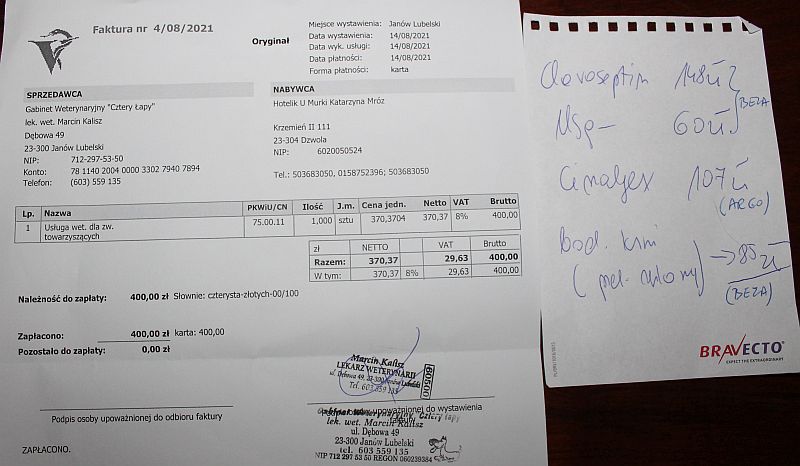 Faktura nr 4/08/2021
Oryginał
Miejsce wystawienia: Janów Lubelski
Data wystawienia: 14/08/2021
Data wyk. usługi: 14/08/2021
Data płatności: 14/08/2021
Forma płatności: karta
SPRZEDAWCA
Gabinet Weterynaryjny "Cztery Łapy"
lek. wet. Marcin Kalisz
Dębowa 49
23-300 Janów Lubelski
NIP: 712-297-53-50
Konto: 78 1140 2004 0000 3302 7940 7894
Telefon: (603) 559 135
NABYWCA
Hotelik U Murki Katarzyna Mróz
Krzemień II 111
23-304 Dzwola
NIP: 6020050524
Tel.: 503683050, 0158752396; 503683050
Lp. Nazwa PKWiU/CN Ilość J.m. Cena jedn. Netto VAT Brutto
1 Usługa wet. dla zw. 75.00.11 1,000 sztu 370,3704 370,37 8% 400,00
towarzyszących
zł NETTO VAT Brutto
Razem: 370,37 29,63 400,00
W tym: 370,37 8% 29,63 400,00
Należność do zapłaty: 400,00 zł Słownie: czterysta-złotych-00/100
Zapłacono: 400,00 zł karta: 400,00
Pozostało do zapłaty: 0,00 zł
Marcin Kalisz
LEKARZ WETERYNARII
ul. Dębowa 49, 23-300 Janów Lubelski
Tel. 603 559 135
00508
Podpis osoby upoważnionej do odbioru faktury
upoważnionej do wystawienia
Weterynaryjny Cztery Łapy
lek. wet. Marcin Kalisz
ul. Dębowa 49
23-300 Janów Lubelski
tel. 603 559 135
NIP 712 297 53 50 REGON 060239384
ZAPŁACONO.
Clavoseptin 148 zł
USG - 60 zł
(BEZA)
Cimalgex 107 zł
(ARGO)
Bad. krwi
(peł. → 85 zł
(BEZA)
BRAVECTO
EXPECT THE EXTRAORDINARY